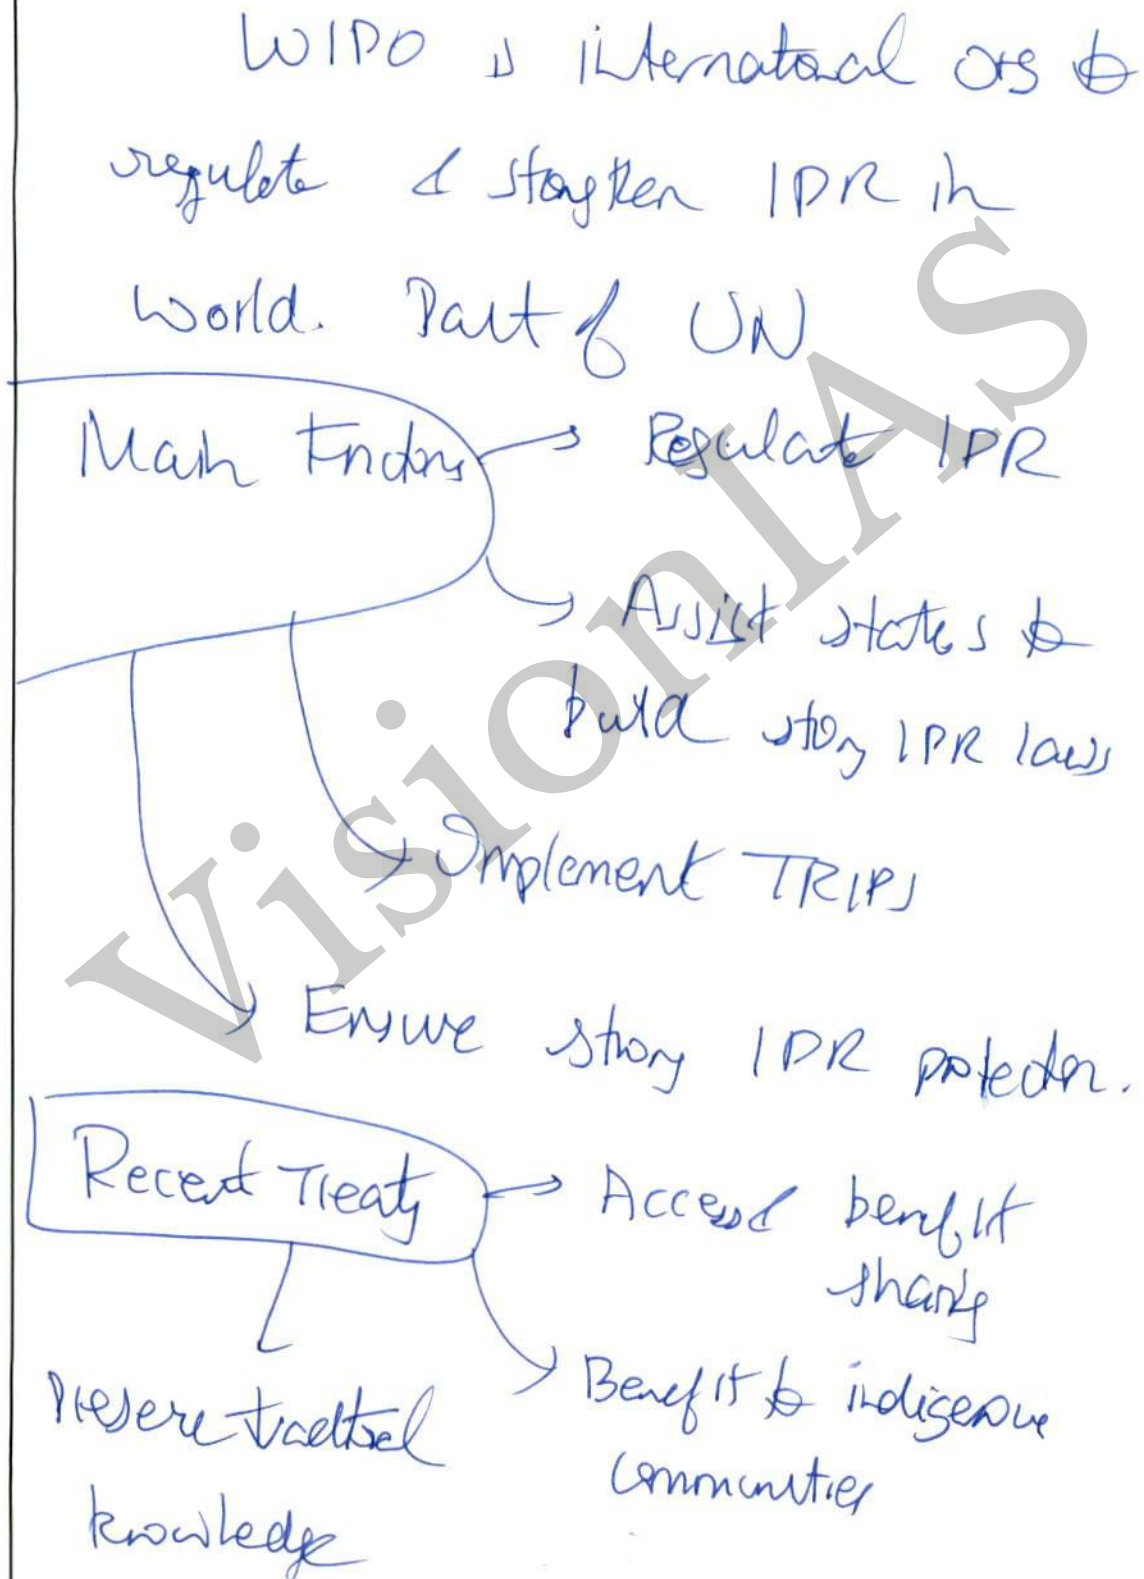 WIPO is international org to
regulate & strengthen IPR in
world. Part of UN
Main Functions
Regulate IPR
Assist states to
build strong IPR laws
Implement TRIPS
Ensure strong IPR protection.
Recent Treaty
Access & benefit
sharing
Benefit to indigenous
communities
Preserve traditional
knowledge
VisionIAS